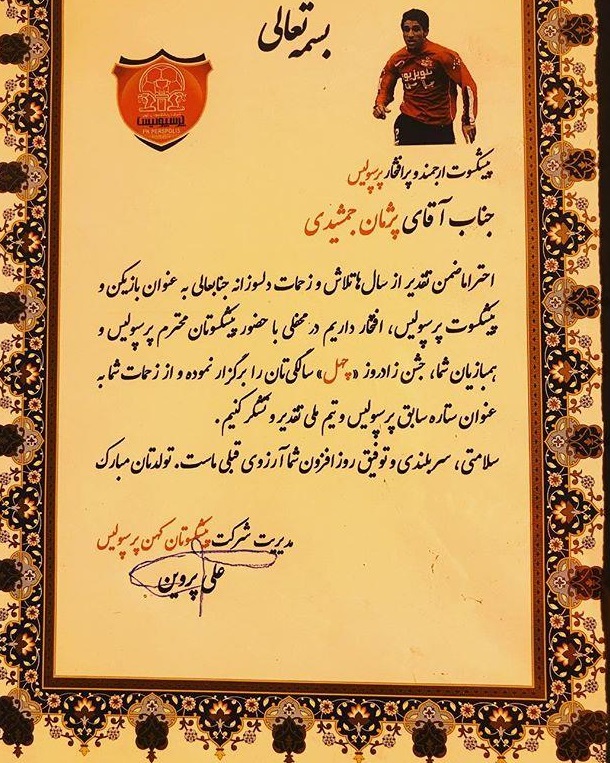 بسمه تعالی
پرسپولیس
PK PERSPOLIS
تلویزیون
پیشکسوت ارجمند و پرافتخار پرسپولیس
جناب آقای پژمان جمشیدی
احتراما ضمن تقدیر از سال ها تلاش و زحمات دلسوزانه جنابعالی به عنوان بازیکن و
پیشکسوت پرسپولیس، افتخار داریم در محفلی با حضور پیشکسوتان محترم پرسپولیس و
همبازیان شما، جشن زادروز «چهل» سالگی‌تان را برگزار نموده و از زحمات شما به
عنوان ستاره سابق پرسپولیس و تیم ملی تقدیر و تشکر کنیم.
سلامتی، سربلندی و توفیق روز افزون شما آرزوی قبلی ماست. تولدتان مبارک
مدیریت شرکت پیشکسوتان کهن پرسپولیس
علی پروین